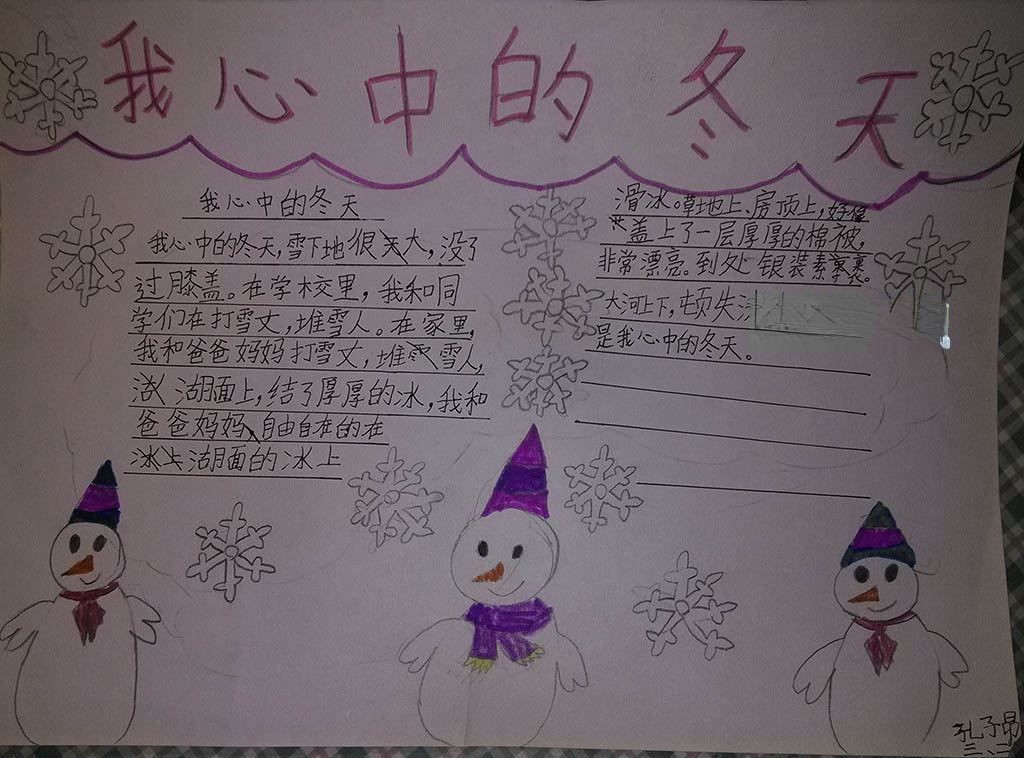 我心中的冬天
我心中的冬天
我心中的冬天,雪下地很大,没了
过膝盖。在学校里,我和同
学们在打雪丈,堆雪人。在家里,
我和爸爸妈妈打雪丈,堆雪人,
湖面上,结了厚厚的冰,我和
爸爸妈妈自由自在的在
湖面的冰上
滑冰。草地上、房顶上,好像
盖上了一层厚厚的棉被,
非常漂亮。到处银装素裹。
大河上下,顿失
是我心中的冬天。
孔子昂
三、二